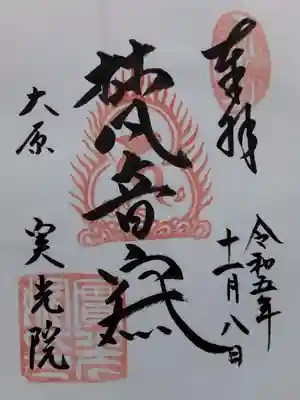 奉拝
令和五年
十一月八日
梵音
大原 実光院